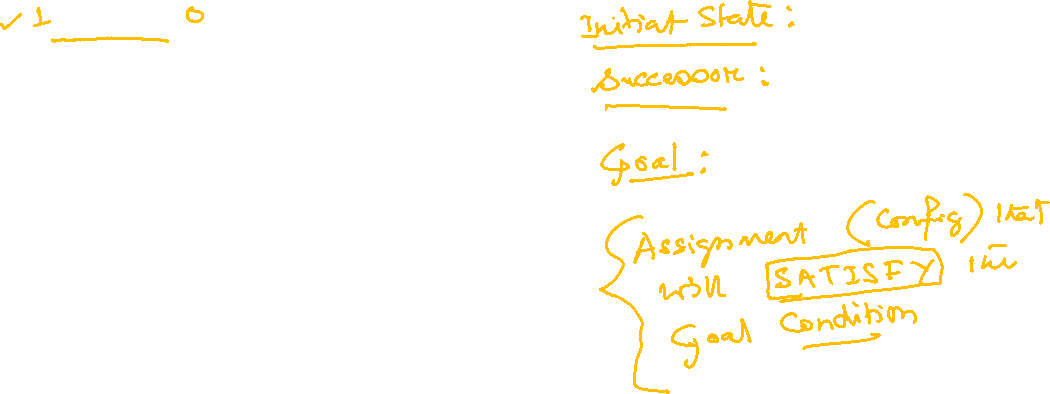 ✓ 1 ______ 0
Initial State :
Successor :
Goal :
Assignment (Config) that
will SATISFY the
Goal Condition